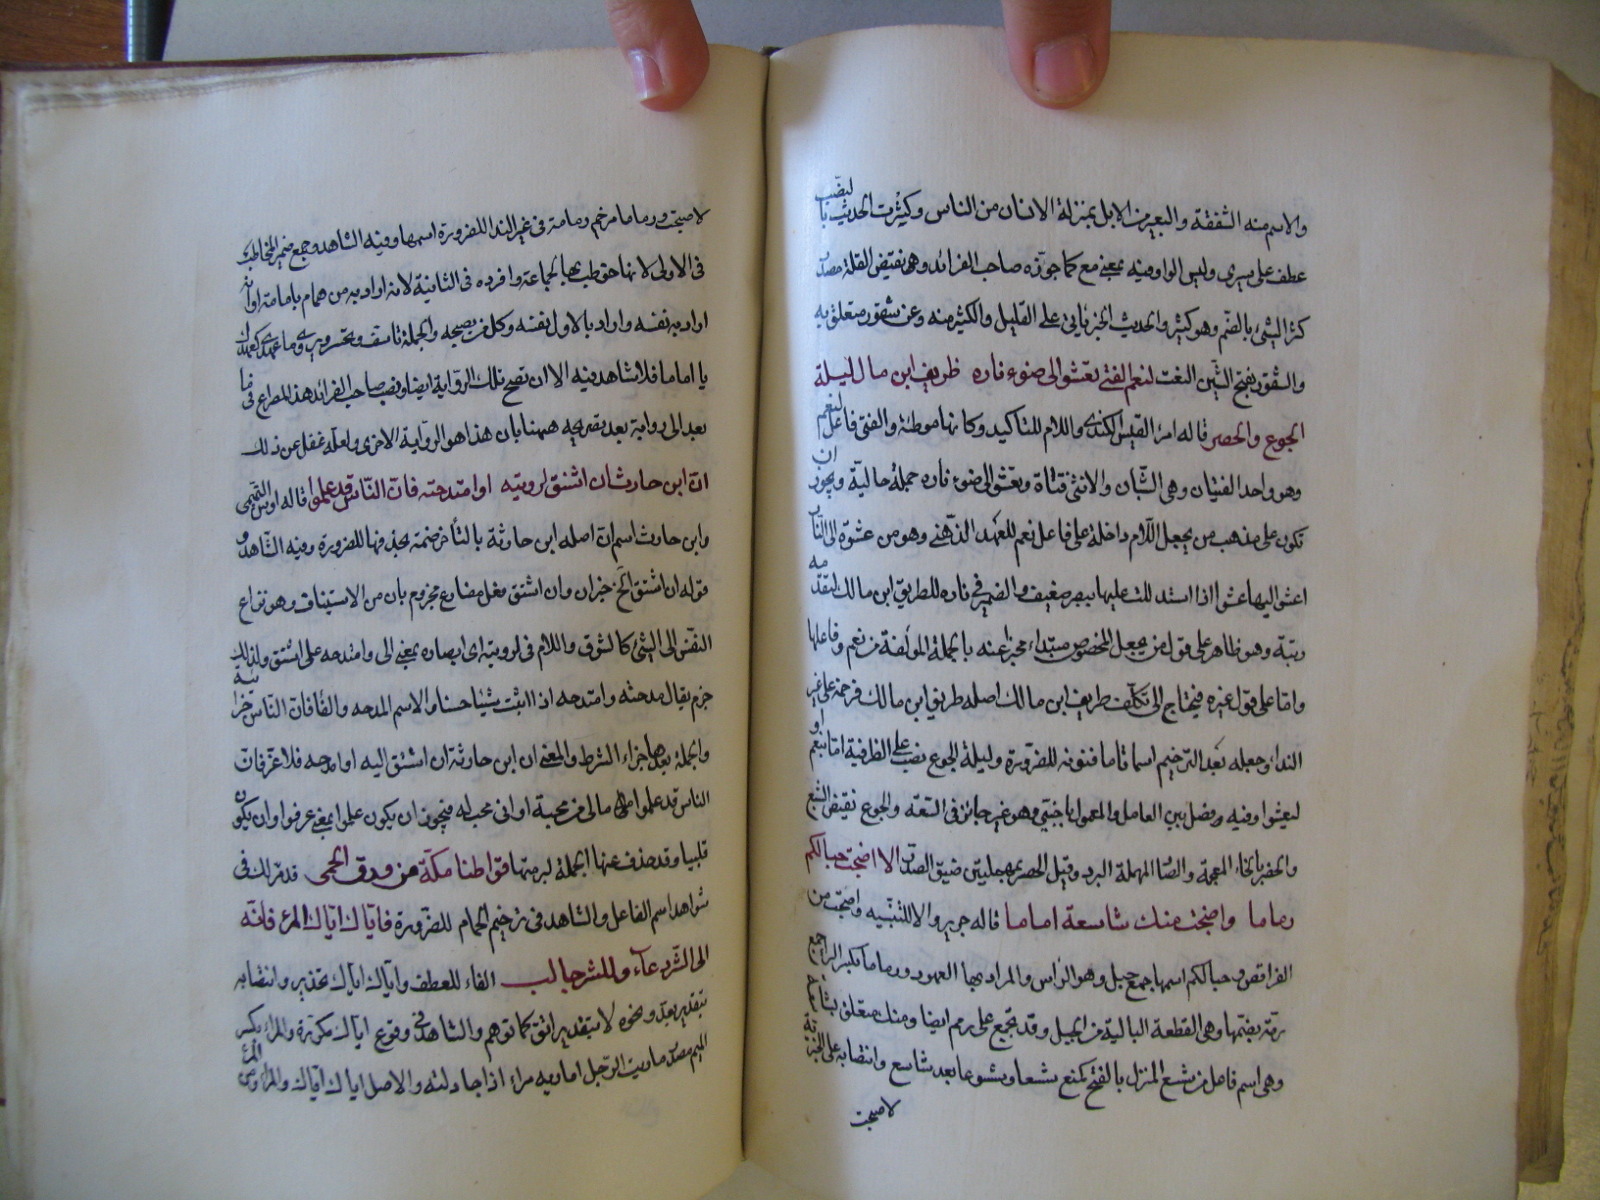 والاسم منه الشفقة والبعير من الابل بمنزلة الانسان من الناس وكثرت الحديث بالنصب
عطف على سيرى وليس الواو فيه بمعنى مع كما جوزه صاحب الفرائد وهو نقيض القلة مصدر
كثر الشئ بالضم وهو كثير والحديث الخبر ياتى على القليل والكثير منه وعن شقور متعلق به
والشقور بفتح الشين النعت لنعم الفتى تعشو الى ضوء ناره طريف ابن مال ليلة
الجوع والحصر قاله امرء القيس الكندى واللام للتاكيد وكانها موطئة والفتى فاعل لنعم
وهو واحد الفتيان وهى الشبان والانثى فتاة وتعشو الى ضوء ناره جملة حالية ويجوز ان
تكون على مذهب من يجعل اللام داخلة على فاعل نعم للعهد الذهنى وهو من عشوة الى النار
اعشو اليها عشوا اذا استدللت عليها ببصر ضعيف والضمير فى ناره للطريف ابن مالك لتقدمه
رتبة وهو ظاهر على قول من يجعل المخصوص مبتداء مخبرا عنه بالجملة المؤلفة من نعم وفاعلها
واما على قول غيره فيحتاج الى تكلف طريف ابن مالك اصله طريف ابن مالك فرخمه على غير
النداء وجعله بعد الترخيم اسما تاما فنونه للضرورة وليلة الجوع نصب على الظرفية اما بنعم او
لتعشوا وفيه وفصل بين العامل والمعمول باجنبى وهو غير جائز فى السعة والجوع نقيض الشبع
والخصر بالخاء المعجمة والصاد المهملة البرد وقيل الحصر بمهملتين ضيق الصدر الا اضحت حبالكم
رماما واضحت منك شاسعة اماما قاله جرير والا للتنبيه واضحت من
النواقص وحبالكم اسمها جمع حبل وهو الراس والمراد بها العهود ورماما بكسر الراء جمع
رمة بضمها وهى القطعة البالية من الحبل وقد تجمع على رمم ايضا ومنك متعلق بشاسعة
وهى اسم فاعل من شسع المنزل بالفتح كمنع شسعا وشسوعا بعد شاسع وانتصابه على الخبرية
لاضحت
لاضحت ورماما مرخم ومامة فى غير الندا للضرورة اسمها وفيه الشاهد وجمع ضمير المخاطب
فى الاولى لانها خوطب بها الجماعة وافرده فى الثانية لانه اراد به من همام بامامة او
اراد به نفسه واراد بالاول نفسه وكل من يصحبه والجملة تاسف وتحسر ويروى وما عهدى كعهدك
يا اماما فلا شاهد فيه الا ان تصح تلك الرواية ايضا ونصب صاحب الفرائد هذا المصراع
بعد الى رواية بعد تصريحه ههنا بان هذا هو الرواية الاخرى ولعله غفل عن ذلك
ان ابن حارث ان اشتق لرويته او امتدحه فان الناس قد علموا قاله اوس التميمى
وابن حارث اسم ان اصله ابن حارثة بالتاء خرخمه بحذفها للضرورة وفيه الشاهد و
قوله ان اشتق الخ خبر ان وان اشتق فعل مضارع مجزوم بان من الاشتياق وهو نزاع
النفس الى الشئ كالشوق واللام فى لرويته اى ابصاره بمعنى الى وامتدحه على اشتق ولذلك
جزم يقال مدحته وامتدحه اذا اثبت شيئا حسنا والاسم المدحه والفا فان الناس جزائية
والجملة بعدها جزاء الشرط والمعنى ان ابن حارثة ان اشتق اليه او امدحه فلا عرفات
الناس قد علموا مالى من محبة او انى محب له فيجوز ان يكون علموا بمعنى عرفوا وان يكون
قلبيا وقد حذف عنها الجملة لبرمتها قواطنا مكة من ورق الحمى قد مر لك فى
شواهد اسم الفاعل والشاهد فى ترخيم الحمام للضرورة فاياك اياك المرء فانه
الى الشر دعاء وللشر جالب الفاء للعطف واياك اياك تحذير وانتصابه
بتقدير بعد ونحوه لا بتقدير اتق كما توهم والشاهد فى وقوع اياك مكررة والمراء بكسر
الميم مصدر ماريت الرجل اماريه مراء اذا جادلته والاصل اياك اياك والمراء